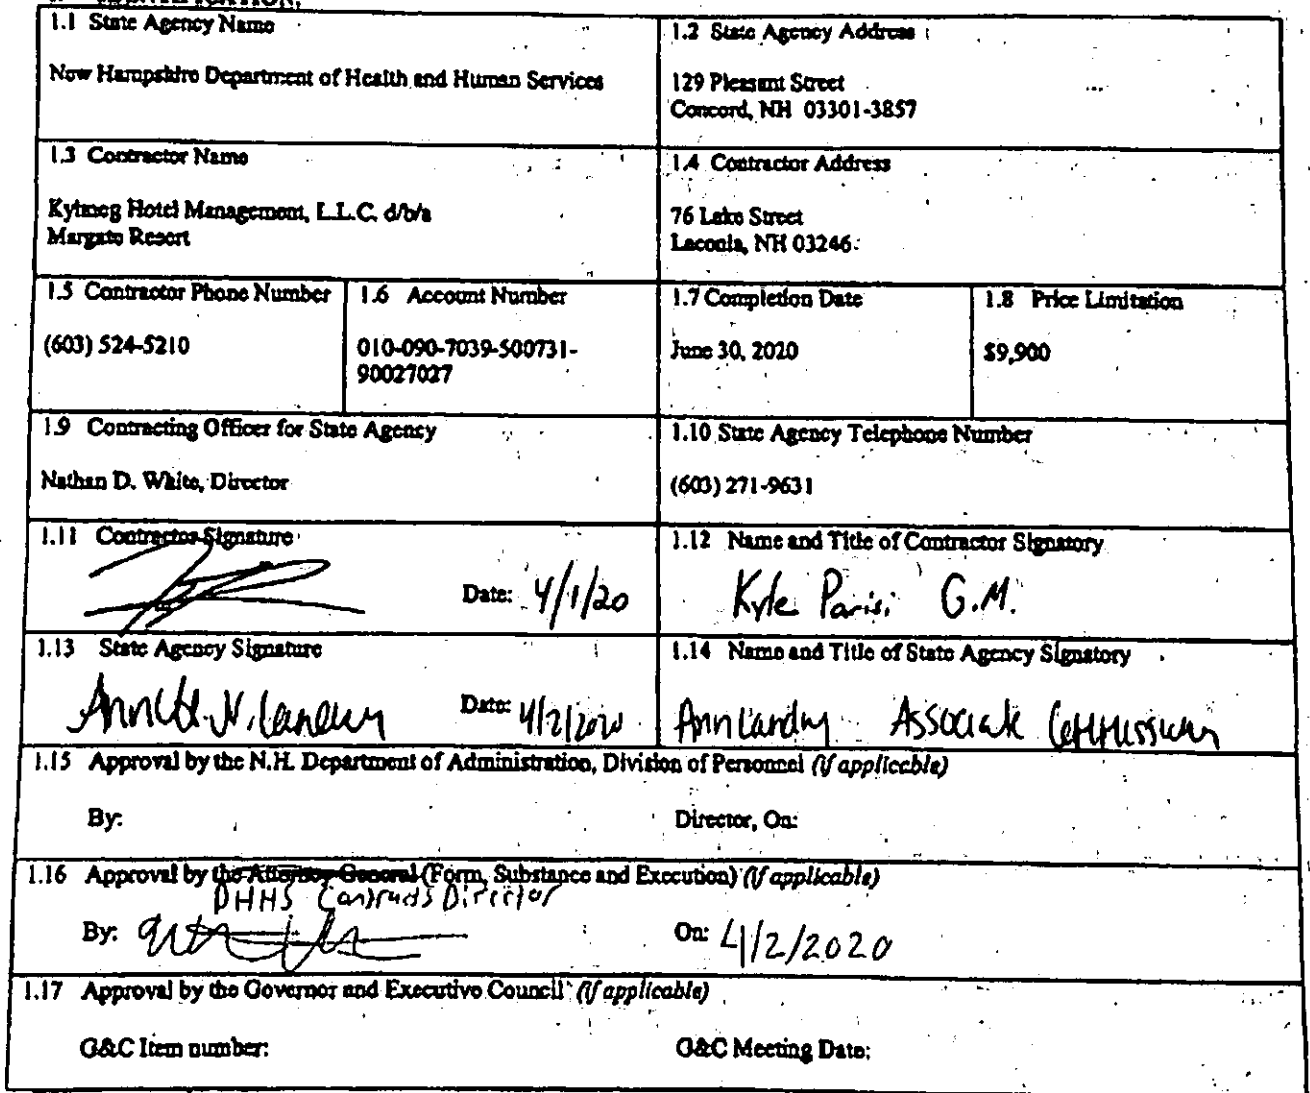 1.1 State Agency Name
New Hampshire Department of Health and Human Services
1.2 State Agency Address
129 Pleasant Street
Concord, NH 03301-3857
1.3 Contractor Name
Kylmeg Hotel Management, L.L.C. d/b/a
Margate Resort
1.4 Contractor Address
76 Lake Street
Laconia, NH 03246
1.5 Contractor Phone Number
(603) 524-5210
1.6 Account Number
010-090-7039-500731-
90027027
1.7 Completion Date
June 30, 2020
1.8 Price Limitation
$9,900
1.9 Contracting Officer for State Agency
Nathan D. White, Director
1.10 State Agency Telephone Number
(603) 271-9631
1.11 Contractor Signature
Date: 4/1/20
1.12 Name and Title of Contractor Signatory
Kyle Parisi G.M.
1.13 State Agency Signature
Date: 4/2/2020
1.14 Name and Title of State Agency Signatory
Ann Landry Associate Commissioner
1.15 Approval by the N.H. Department of Administration, Division of Personnel (if applicable)
By:
Director, On:
1.16 Approval by the Attorney General (Form, Substance and Execution) (if applicable)
DHHS Contracts Director
By:
On: 4/2/2020
1.17 Approval by the Governor and Executive Council (if applicable)
G&C Item number:
G&C Meeting Date: